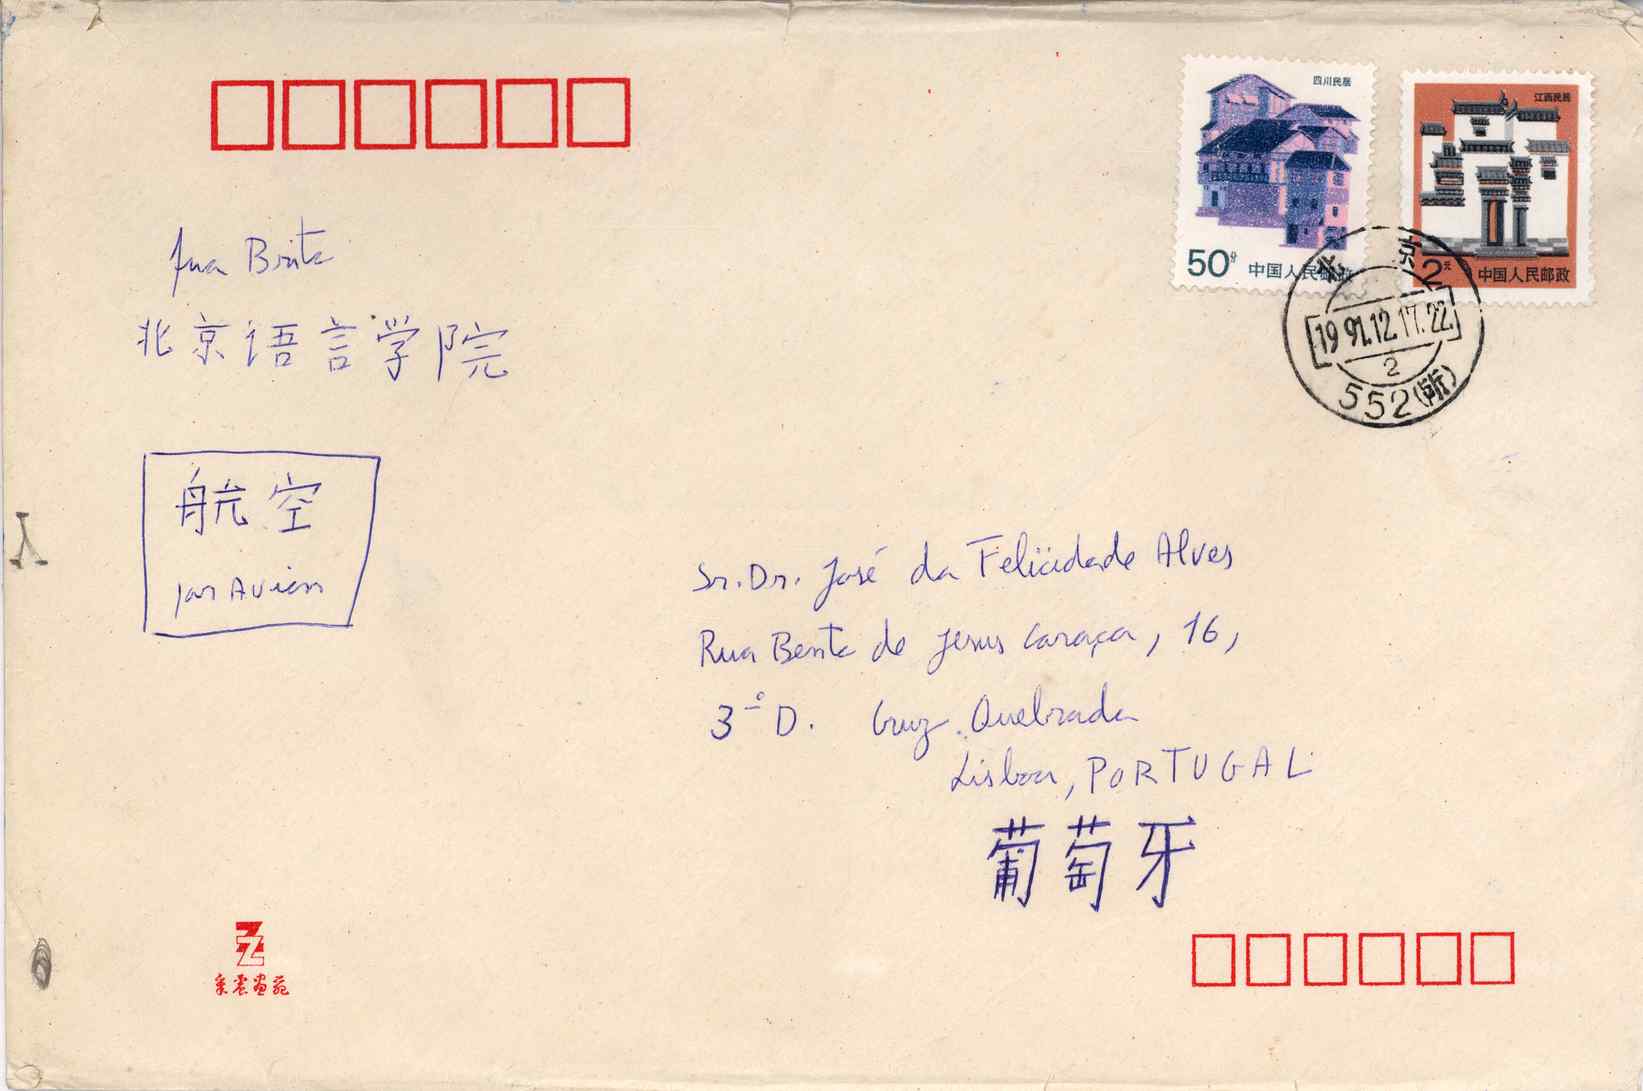 四川民居
50分 中国人民邮政
江西民居
2元 中国人民邮政
北京
1991.12.17.22
2
552(所)
Brito
北京语言学院
航空
par Avion
Sr. Dr. José da Felicidade Alves
Rua Bento de Jesus Caraça, 16,
3º D. Cruz Quebrada
Lisboa, PORTUGAL
葡萄牙